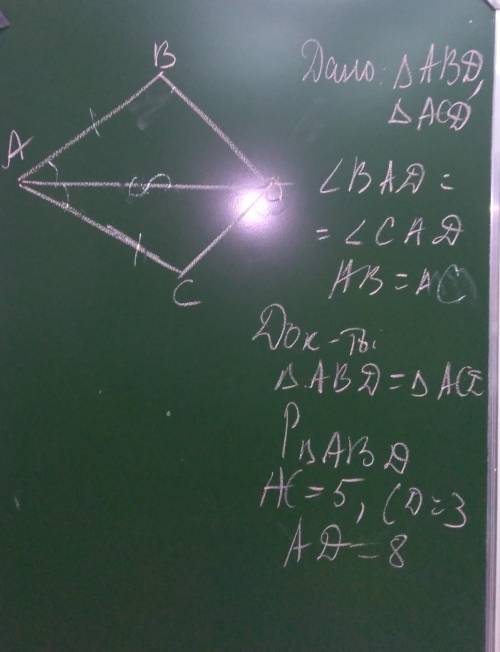 B
A
D
C
Дано: ΔABD,
ΔACD
∠BAD =
= ∠CAD
AB = AC
Док-ть:
ΔABD = ΔACD
PΔABD
AC = 5, CD = 3
AD = 8